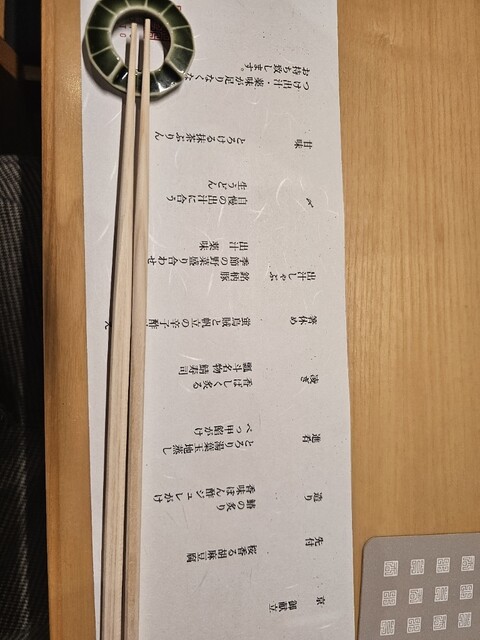 京
御献立
先付
桜香る胡麻豆腐
造り
鰆の炙り
香味ぽん酢ジュレがけ
進肴
とろり湯葉玉地蒸し
べっ甲餡がけ
凌ぎ
香ばしく炙る
瓢斗名物鯖寿司
箸休め
蛍烏賊と帆立の辛子酢
出汁しゃぶ
銘柄豚
季節の野菜盛り合わせ
出汁 薬味
〆
自慢の出汁に合う
生うどん
甘味
とろける抹茶ぷりん
つけ出汁・薬味が足りなくな
お持ち致します。